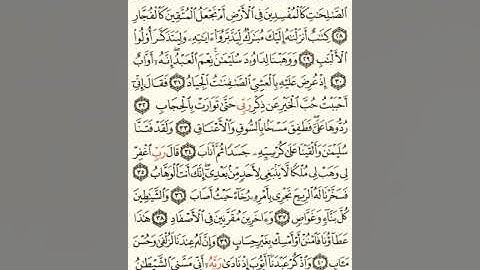 الصَّٰلِحَٰتِ كَالْمُفْسِدِينَ فِى الْأَرْضِ أَمْ نَجْعَلُ الْمُتَّقِينَ كَالْفُجَّارِ
٢٨ كِتَٰبٌ أَنزَلْنَٰهُ إِلَيْكَ مُبَٰرَكٌ لِّيَدَّبَّرُوٓا۟ ءَايَٰتِهِۦ وَلِيَتَذَكَّرَ أُو۟لُوا۟
الْأَلْبَٰبِ ٢٩ وَوَهَبْنَا لِدَاوُۥدَ سُلَيْمَٰنَ ۚ نِعْمَ الْعَبْدُ ۖ إِنَّهُۥٓ أَوَّابٌ
٣٠ إِذْ عُرِضَ عَلَيْهِ بِالْعَشِىِّ الصَّٰفِنَٰتُ الْجِيَادُ ٣١ فَقَالَ إِنِّىٓ
أَحْبَبْتُ حُبَّ الْخَيْرِ عَن ذِكْرِ رَبِّى حَتَّىٰ تَوَارَتْ بِالْحِجَابِ ٣٢
رُدُّوهَا عَلَىَّ ۖ فَطَفِقَ مَسْحًۢا بِالسُّوقِ وَالْأَعْنَاقِ ٣٣ وَلَقَدْ فَتَنَّا
سُلَيْمَٰنَ وَأَلْقَيْنَا عَلَىٰ كُرْسِيِّهِۦ جَسَدًا ثُمَّ أَنَابَ ٣٤ قَالَ رَبِّ اغْفِرْ
لِى وَهَبْ لِى مُلْكًا لَّا يَنۢبَغِى لِأَحَدٍ مِّنۢ بَعْدِىٓ ۖ إِنَّكَ أَنتَ الْوَهَّابُ ٣٥
فَسَخَّرْنَا لَهُ الرِّيحَ تَجْرِى بِأَمْرِهِۦ رُخَآءً حَيْثُ أَصَابَ ٣٦ وَالشَّيَٰطِينَ
كُلَّ بَنَّآءٍ وَغَوَّاصٍ ٣٧ وَءَاخَرِينَ مُقَرَّنِينَ فِى الْأَصْفَادِ ٣٨ هَٰذَا
عَطَآؤُنَا فَامْنُنْ أَوْ أَمْسِكْ بِغَيْرِ حِسَابٍ ٣٩ وَإِنَّ لَهُۥ عِندَنَا لَزُلْفَىٰ وَحُسْنَ
مَـَٔابٍ ٤٠ وَاذْكُرْ عَبْدَنَآ أَيُّوبَ إِذْ نَادَىٰ رَبَّهُۥٓ أَنِّى مَسَّنِىَ الشَّيْطَٰنُ